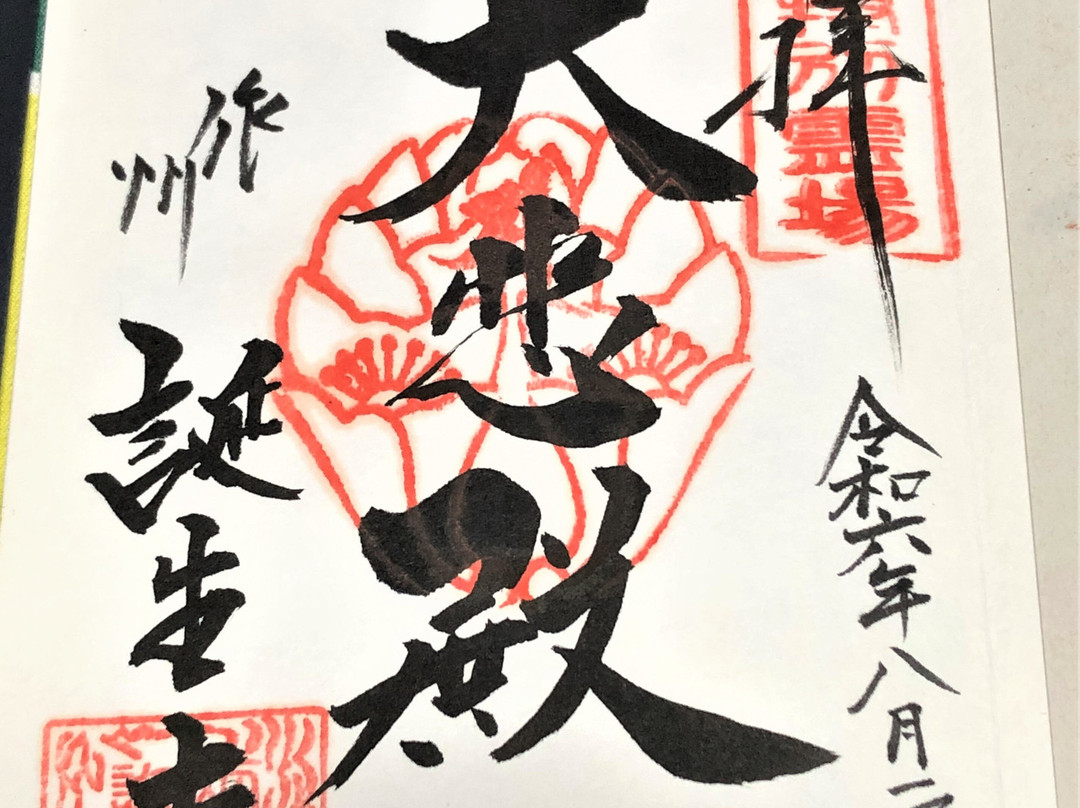 拝
霊場
令和六年八月
大悲殿
作州
誕生寺